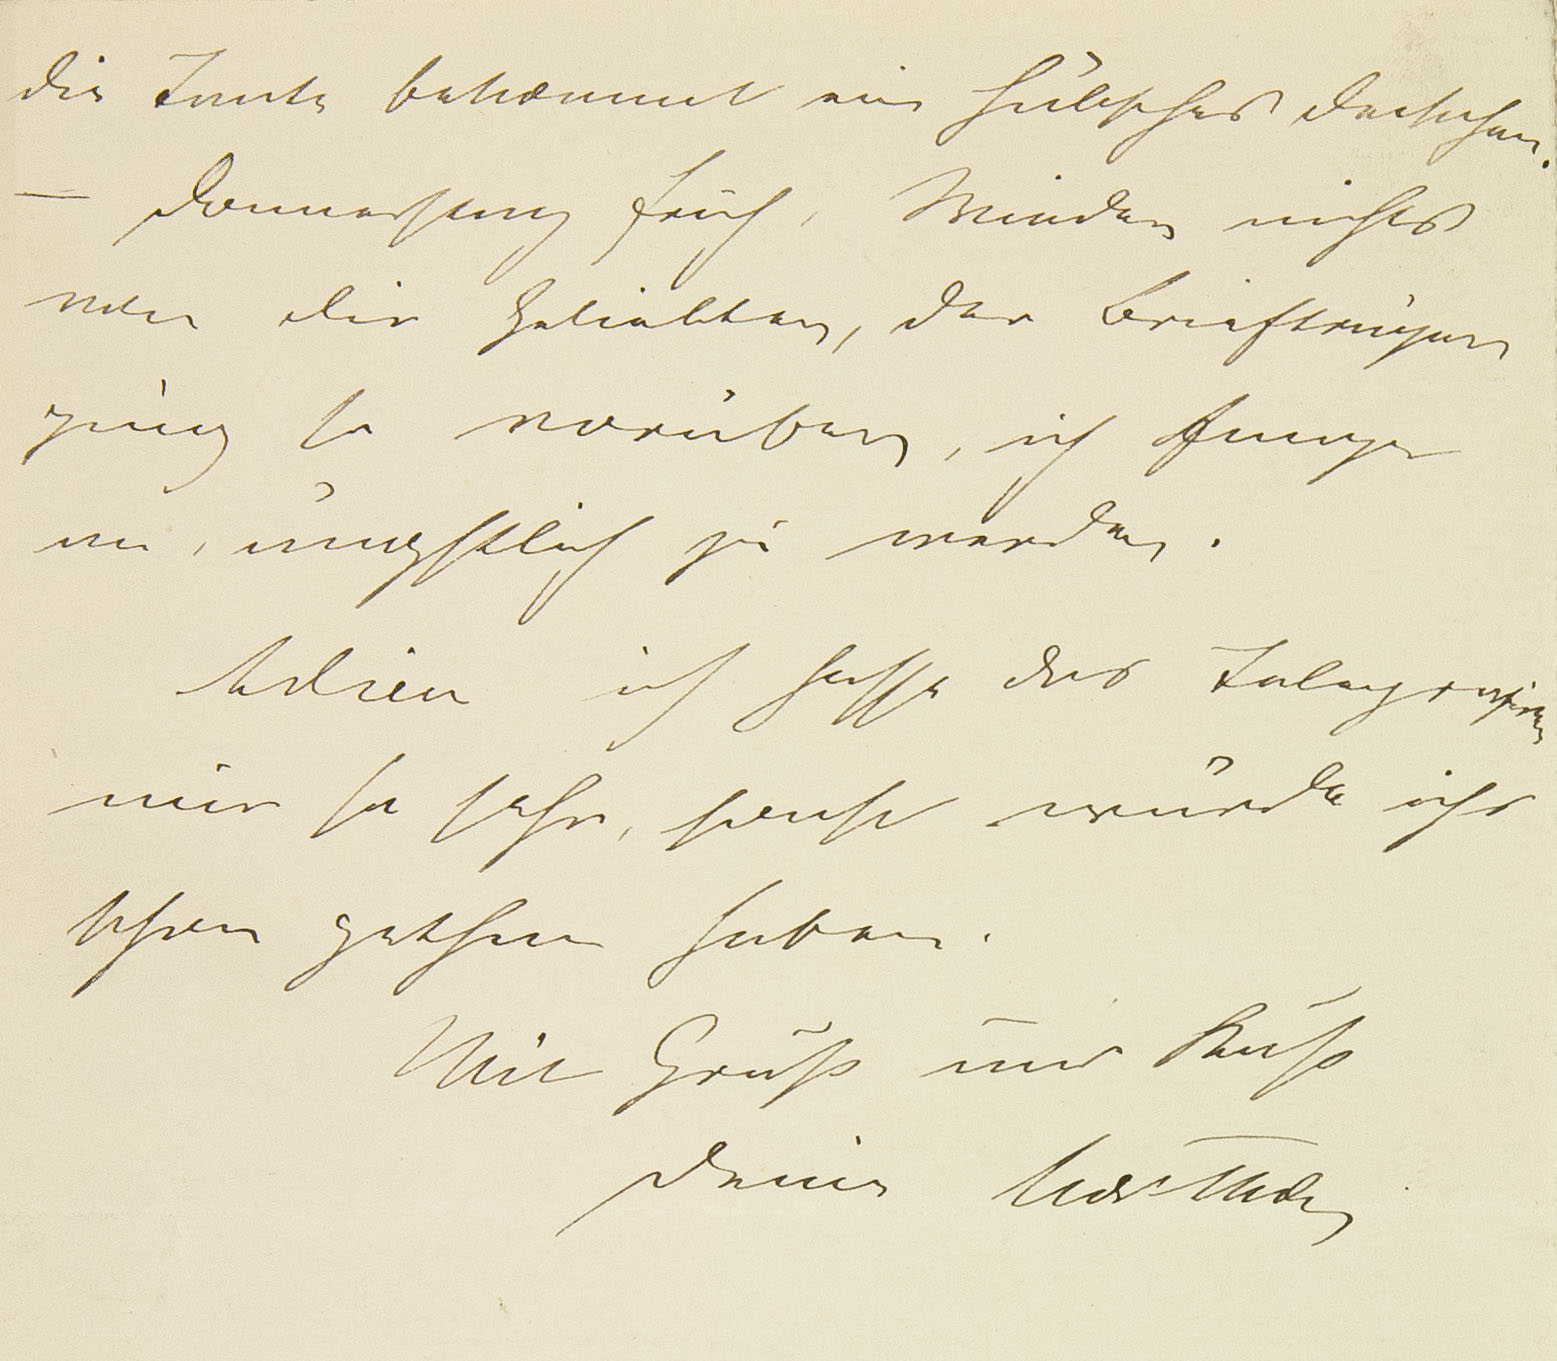 die Tante bekommt ein hübsches Deckchen.
— Donnerstag früh. Wieder nichts
von dir Geliebten, der Briefträger
ging so vorüber, ich fange
an, ängstlich zu werden.
Adieu ich hasse das Telegraphiren
mir so sehr, sonst würde ichs
schon gethan haben.
Mit Gruß und Kuß
Deine